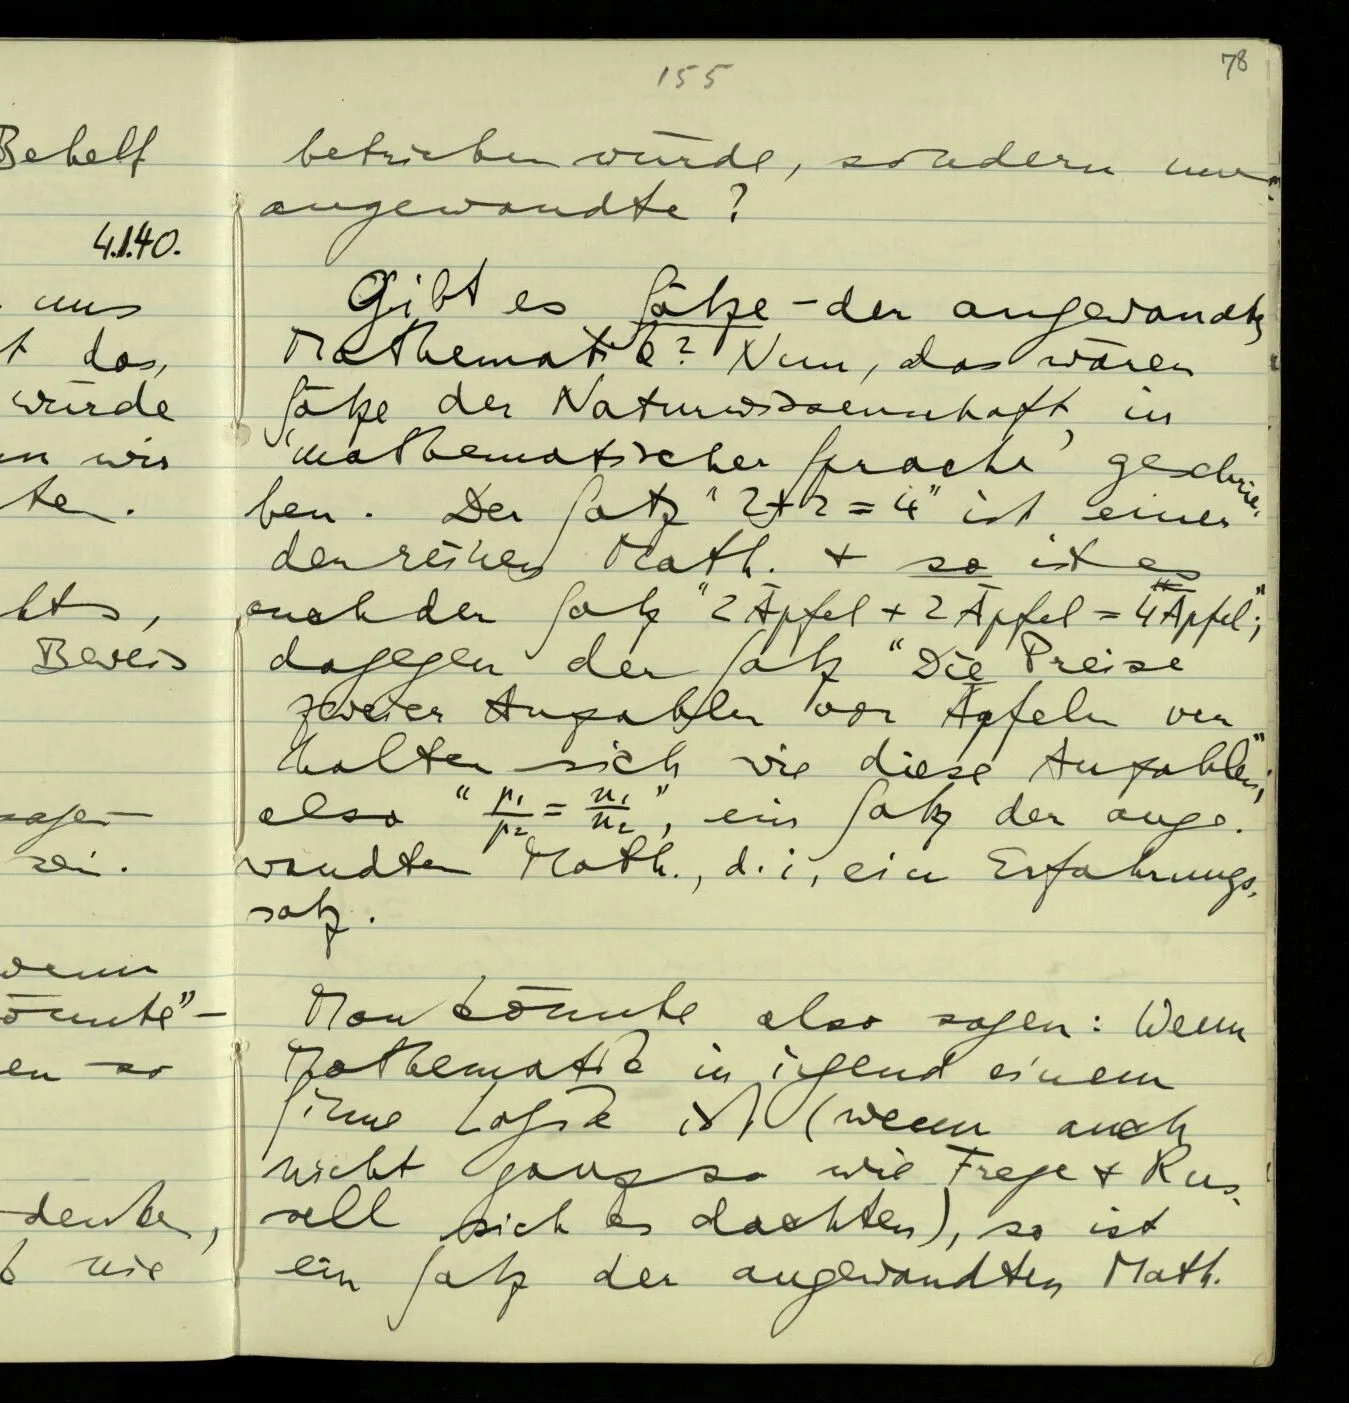 155
78
Behelf
4.1.40.
uns
t das,
würde
n wir
ten.
hts,
Beweis
sagen
sein.
wenn
önnte" –
en so
denken,
wie
betrieben würde, sondern nur
angewandte?
Gibt es Sätze – der angewandten
Mathematik? Nun, das wären
Sätze der Naturwissenschaft, in
'mathematischer Sprache' geschrie-
ben. Der Satz "2+2=4" ist einer
der reinen Math. + so ist es
auch der Satz "2 Äpfel + 2 Äpfel = 4 Äpfel";
dagegen der Satz "Die Preise
zweier Anzahlen von Äpfeln ver
halten sich wie diese Anzahlen",
also "p₁/p₂ = n₁/n₂", ein Satz der ange-
wandten Math., d.i, ein Erfahrungs-
satz.
Man könnte also sagen: Wenn
Mathematik in irgend einem
Sinne Logik ist (wenn auch
nicht ganz so wie Frege + Rus-
sell sich es dachten), so ist
ein Satz der angewandten Math.